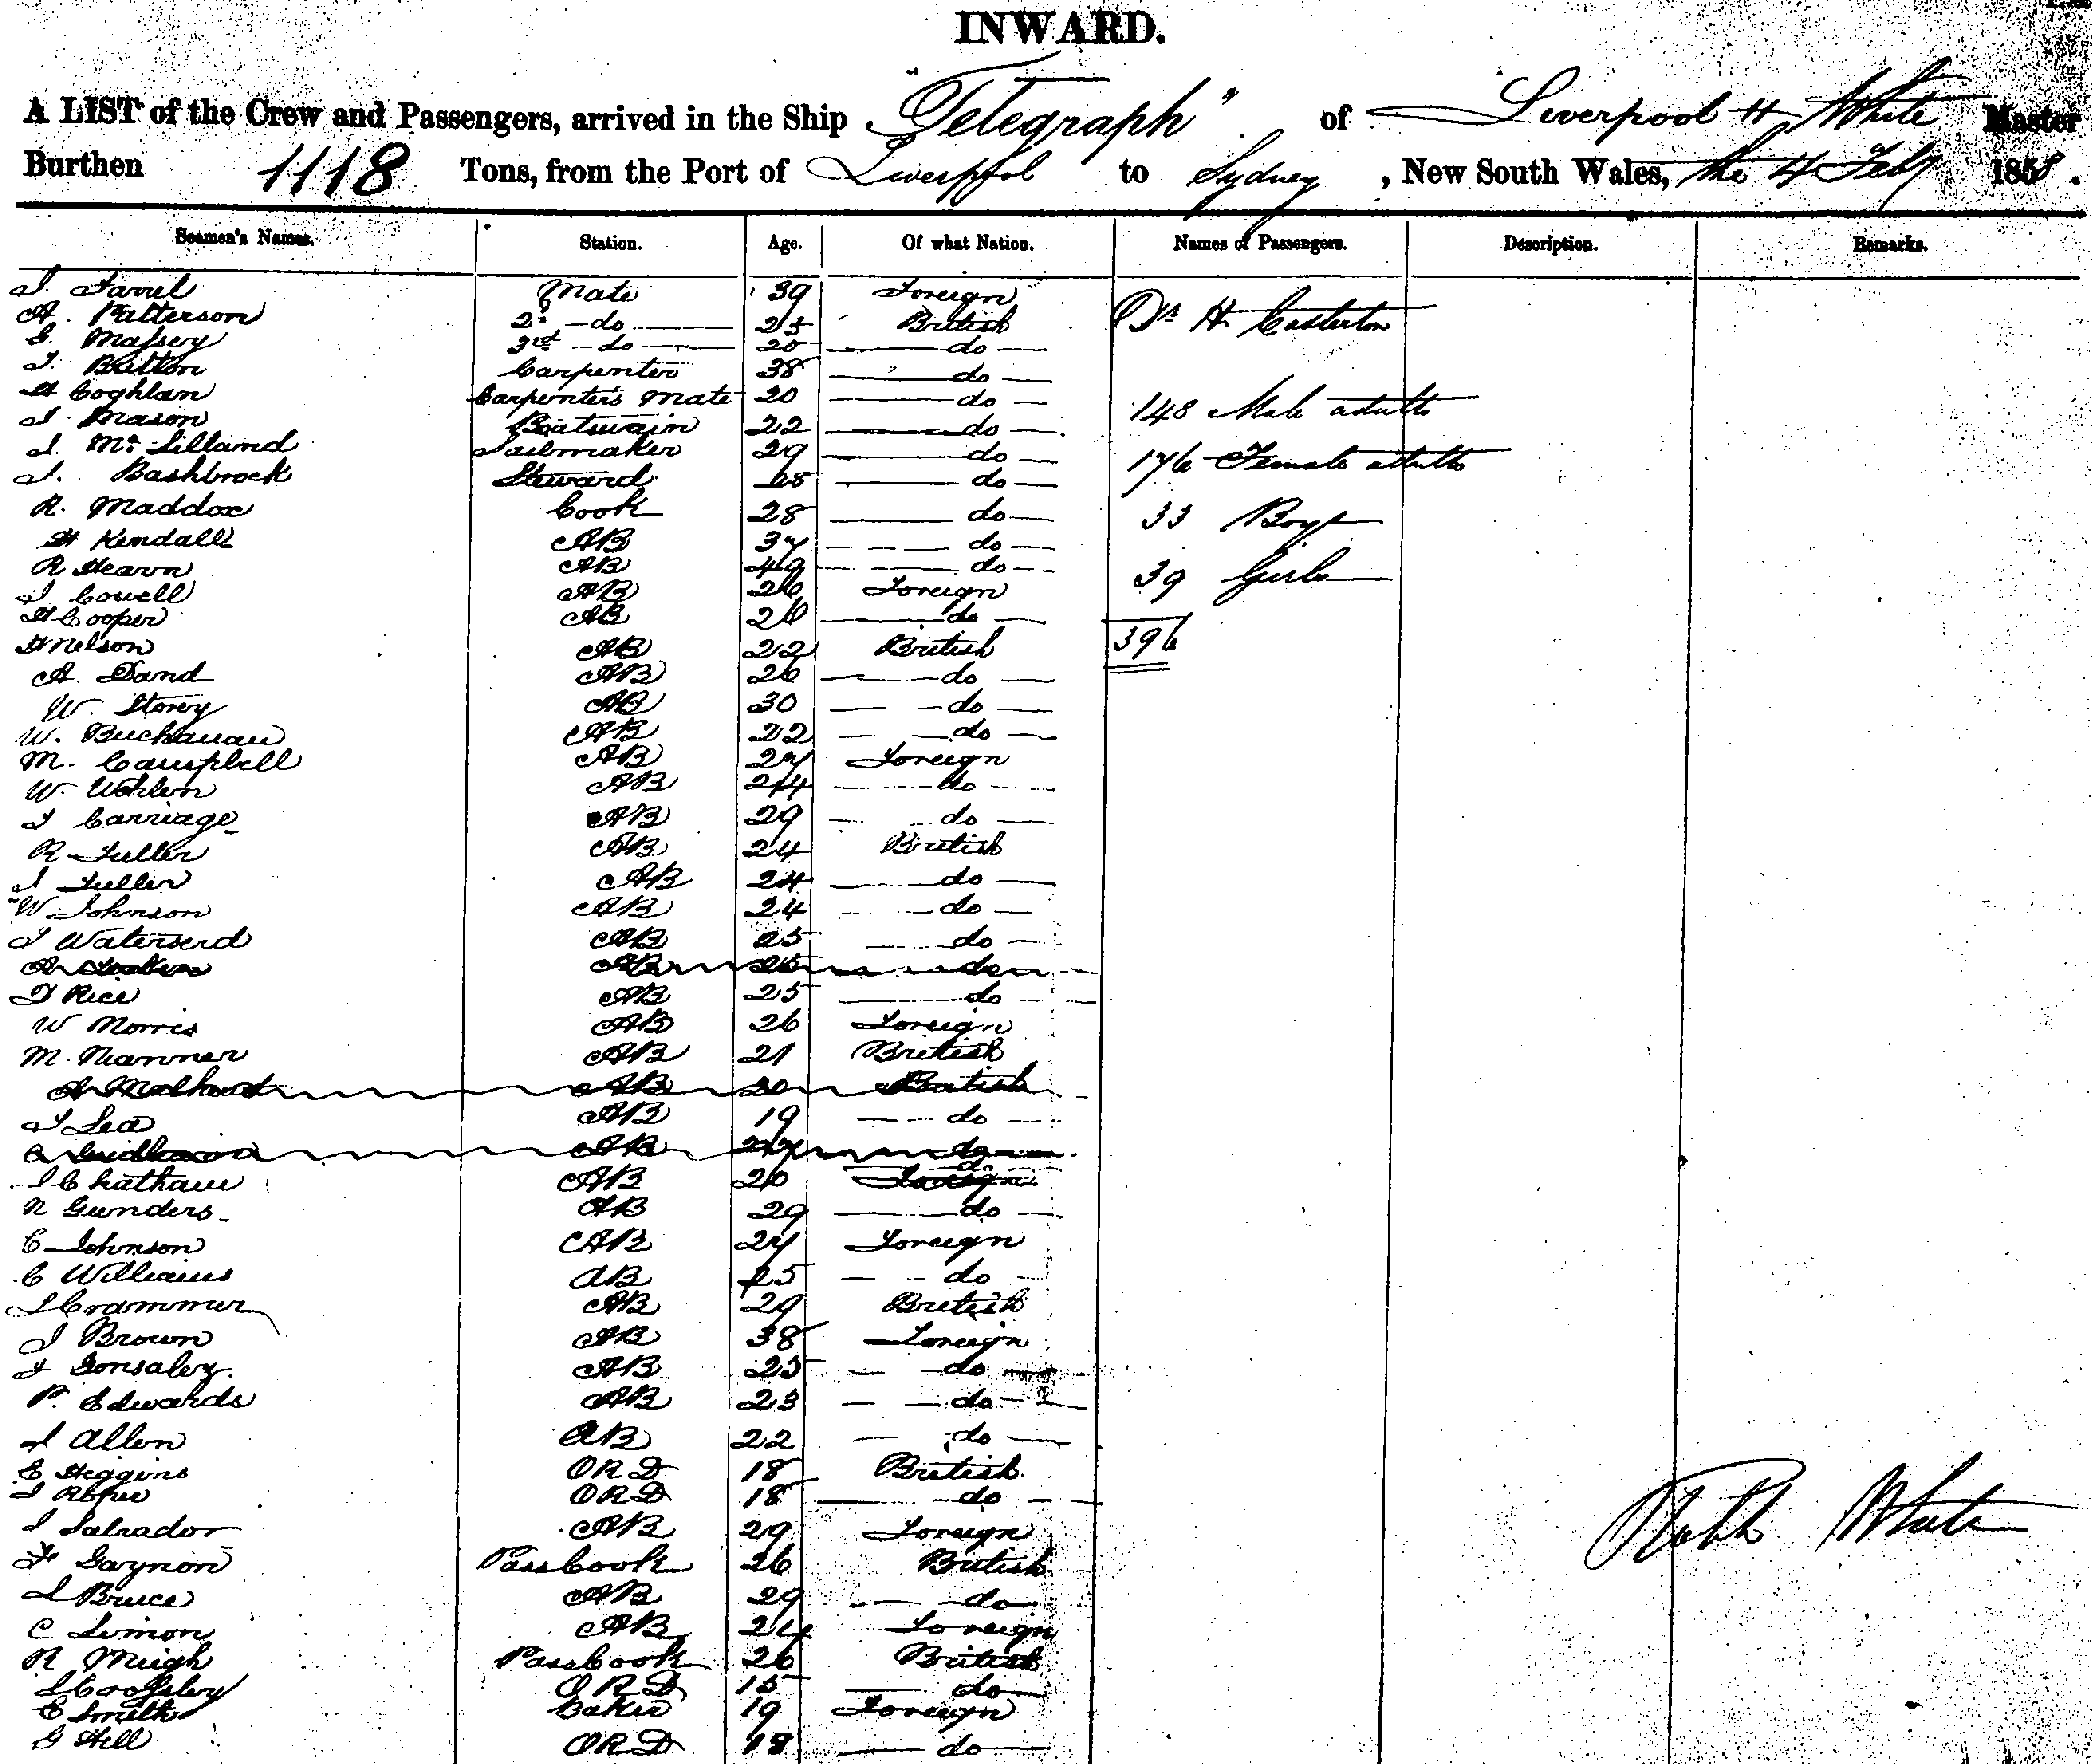 INWARD.
A LIST of the Crew and Passengers, arrived in the Ship "Telegraph" of Liverpool H White Master
Burthen 1118 Tons, from the Port of Liverpool to Sydney, New South Wales, the 4 Feby 1858.
Seamen's Names. Station. Age. Of what Nation. Names of Passengers. Description. Remarks.
Mate 39 Foreign Dr H Casterton
A. Patterson 2d do 25 British
G. Massey 3rd do 20 do
Carpenter 38 do
H Coghlan Carpenters Mate 20 do 148 Male adults
J. Mason Boatswain 22 do
Sailmaker 29 do 176 Female adults
J. Bashbrock Steward do
R. Maddox Cook 28 do 33 Boys
H Kendall AB 37 do
R Hearn AB 49 do 39 Girls
J Cowell AB 26 Foreign
H Cooper AB 26 do
H Nelson AB 22 British 396
A. Dand AB 26 do
W. Storey AB 30 do
W. Buchanan AB 22 do
M. Campbell AB 27 Foreign
W. AB 24 do
J Carriage AB 29 do
R Fuller AB 24 British
J Fuller AB 24 do
W Johnson AB 24 do
J AB 25 do
AB
T Rice AB 25 do
W Morris AB 26 Foreign
M. AB 21 British
AB 20 British
J Lea AB 19 do
AB do
J Chatham AB 20 do
N Gunders AB 29 do
C Johnson AB 27 Foreign
C Williams AB 25 do
J Crammer AB 29 British
J Brown AB 38 Foreign
J Gonsaley AB 25 do
P. Edwards AB 23 do
J Allen AB 22 do
C Higgins ORD 18 British
J ORD 18 do
J Salvador AB 29 Foreign
F Gaynon Pass Cook 26 British
J Bruce AB 29 do
C Simon AB 24 Foreign
R Meigh Pass Cook 26 British
J ORD 15 do
E Smith Baker 19 Foreign
G Hill ORD 18 do
White